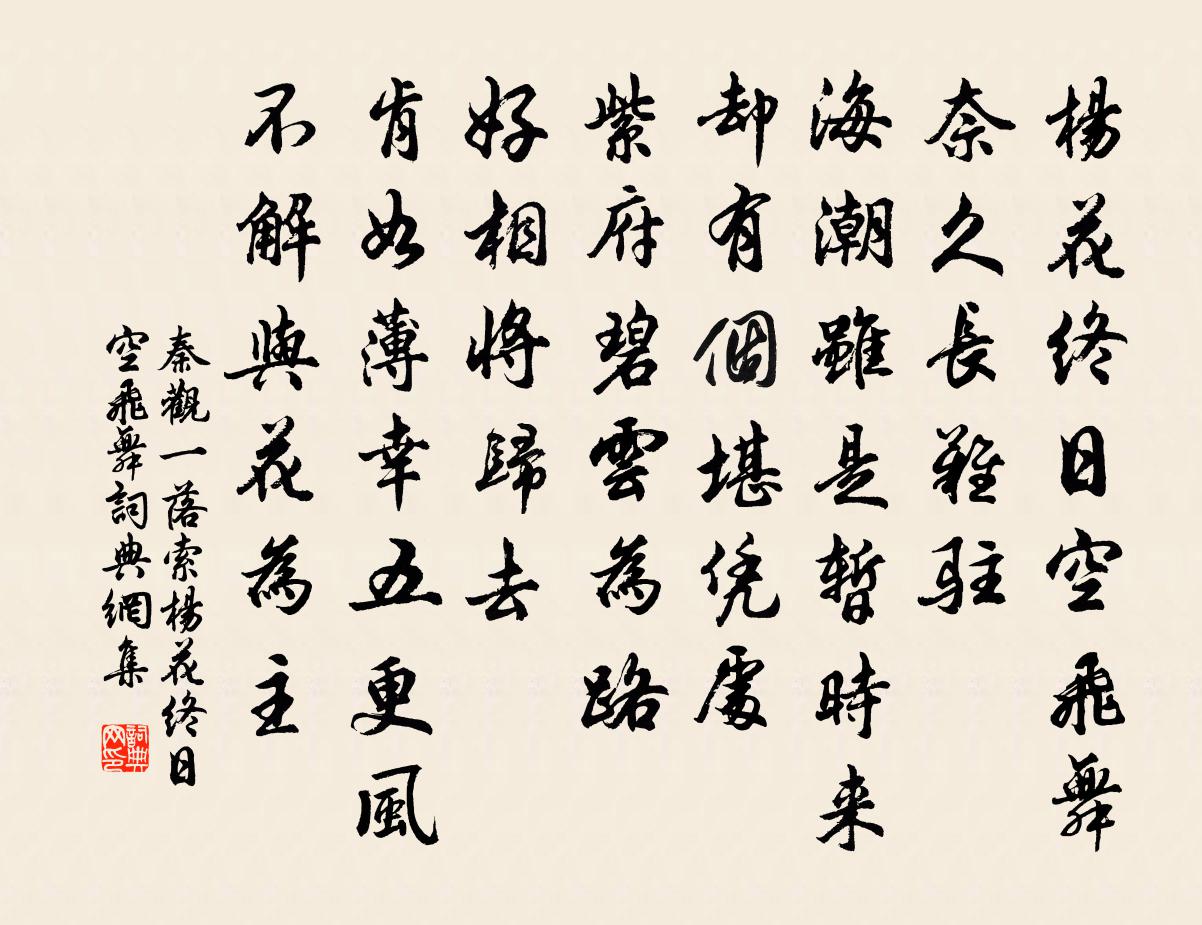 楊花終日空飛舞
奈久長難駐
海潮雖是暫時来
却有個堪凭處
紫府碧雲為路
好相將歸去
肯如薄幸五更風
不解與花為主
秦觀一落索楊花終日
空飛舞詞典網集
詞典网印